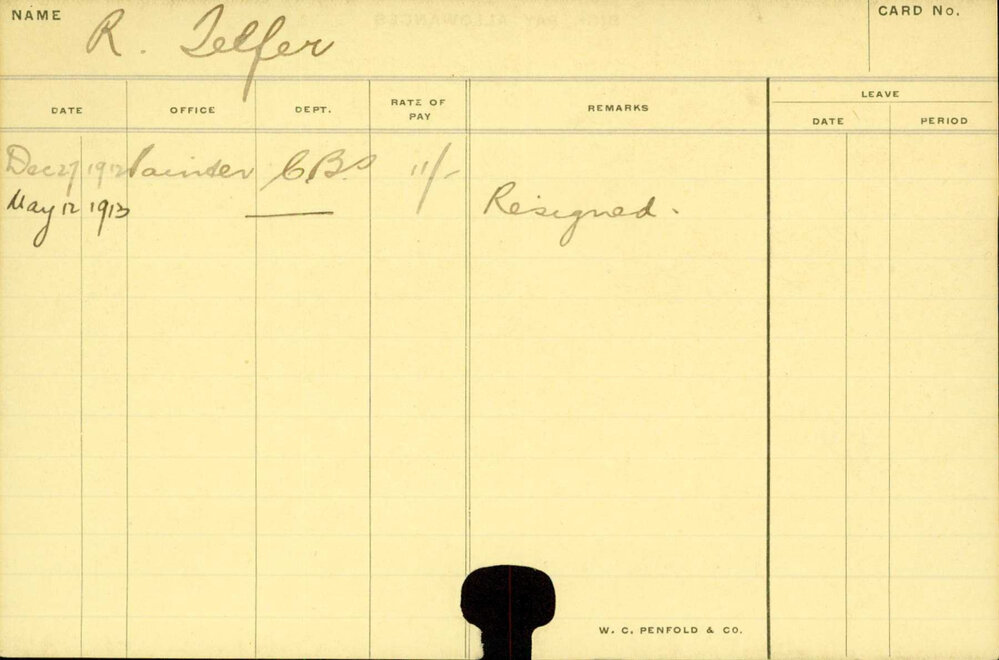 NAME R. Telfer CARD No.
DATE OFFICE DEPT. RATE OF PAY REMARKS LEAVE
DATE PERIOD
Dec 27 1912 Painter C.Bs 11/-
May 12 1913 —— Resigned.
W. C. PENFOLD & CO.